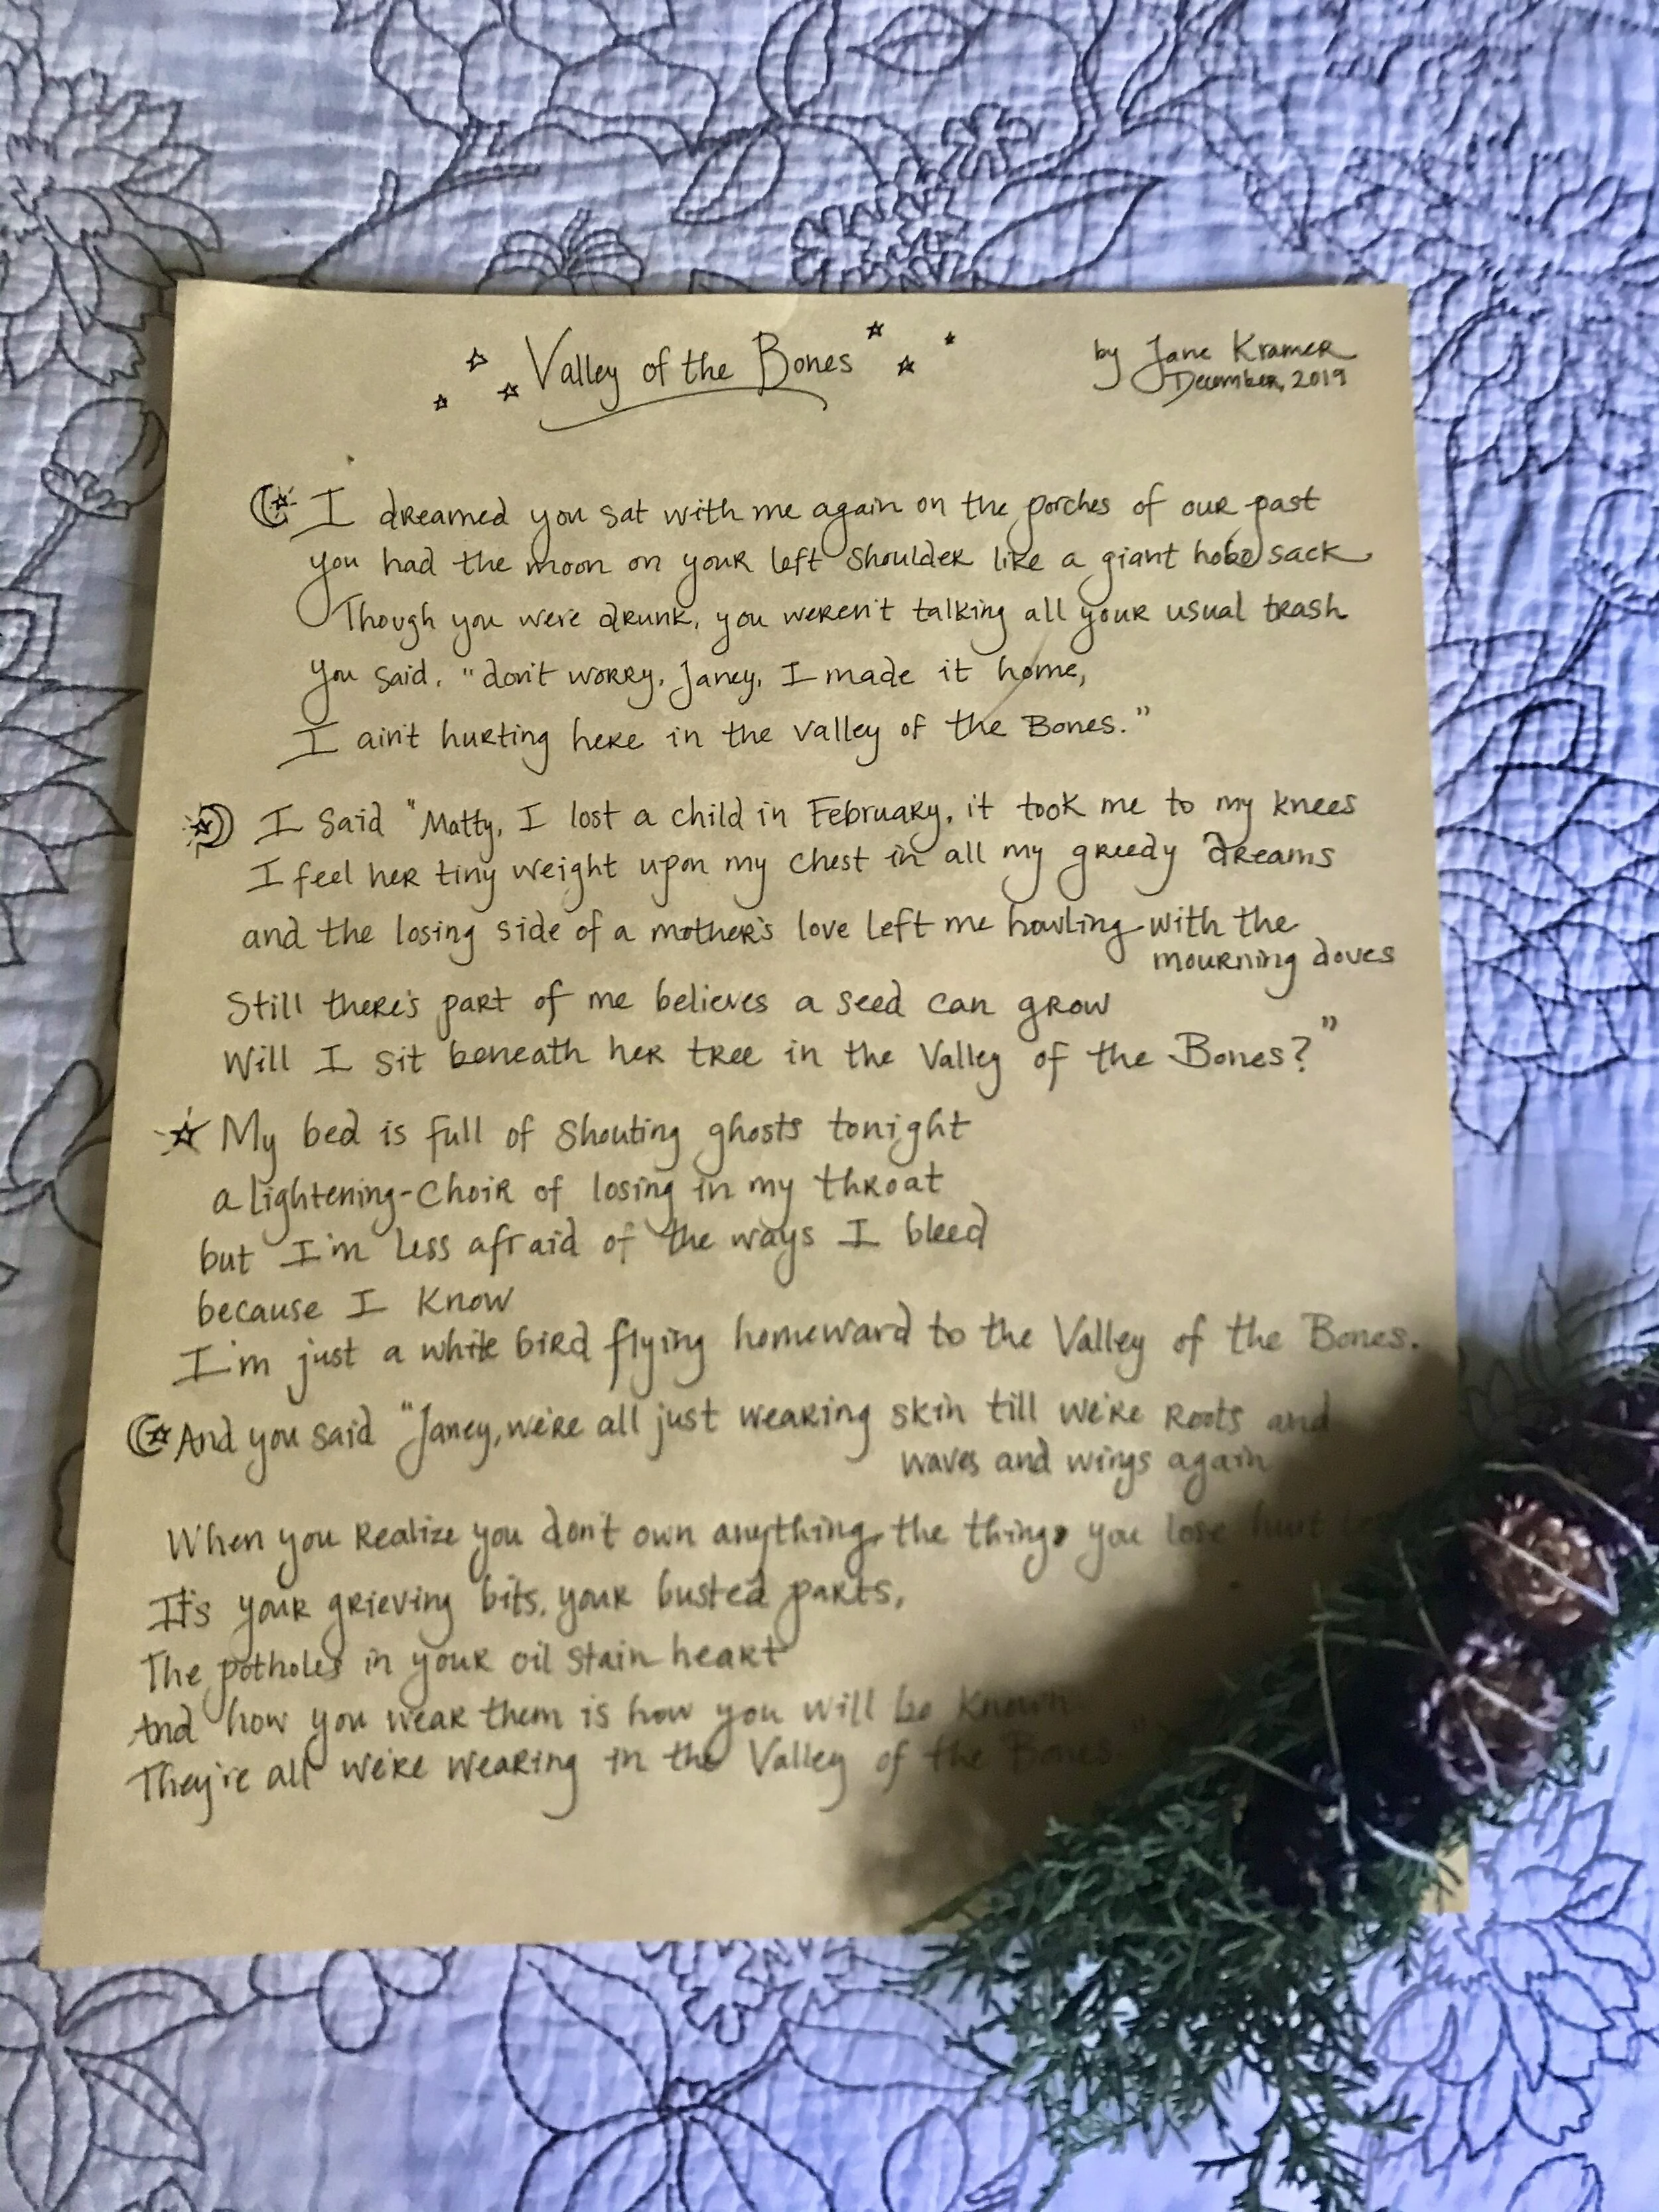 Valley of the Bones
by Jane Kramer
December, 2019
I dreamed you sat with me again on the porches of our past
you had the moon on your left shoulder like a giant hobo sack
Though you were drunk, you weren't talking all your usual trash
you said, "don't worry, Janey, I made it home,
I ain't hurting here in the valley of the Bones."
I said "Matty, I lost a child in February, it took me to my knees
I feel her tiny weight upon my chest in all my greedy dreams
and the losing side of a mother's love left me howling with the
mourning doves
Still there's part of me believes a seed can grow
Will I sit beneath her tree in the Valley of the Bones?"
My bed is full of shouting ghosts tonight
a lightening-choir of losing in my throat
but I'm less afraid of the ways I bleed
because I know
I'm just a white bird flying homeward to the Valley of the Bones.
And you said "Janey, we're all just wearing skin till we're roots and
waves and wings again
When you realize you don't own anything, the things you lose hurt
It's your grieving bits, your busted parts,
The potholes in your oil stain heart
And how you wear them is how you will be known
They're all we're wearing in the Valley of the Bones"